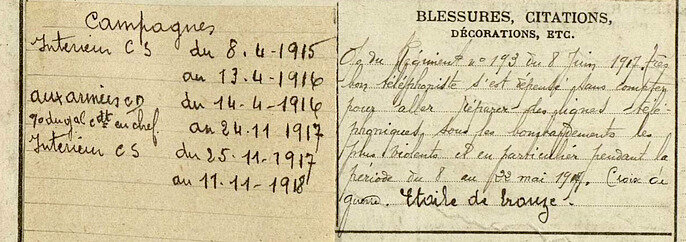 Campagnes
Intérieur CS du 8.4-1915
au 13.4-1916
aux armées CD du 14-4-1916
Go du gal Cdt en chef. au 24.11 1917
Intérieur CS du 25-11-1917
au 11-11-1918
BLESSURES, CITATIONS,
DÉCORATIONS, ETC.
du Régiment no 193 du 8 Juin 1917. Très
bon téléphoniste s'est dépensé sans compter
pour aller réparer des lignes télé-
phoniques sous les bombardements les
plus violents et en particulier pendant la
période du 8 au 22 mai 1917. Croix de
guerre. Etoile de bronze.